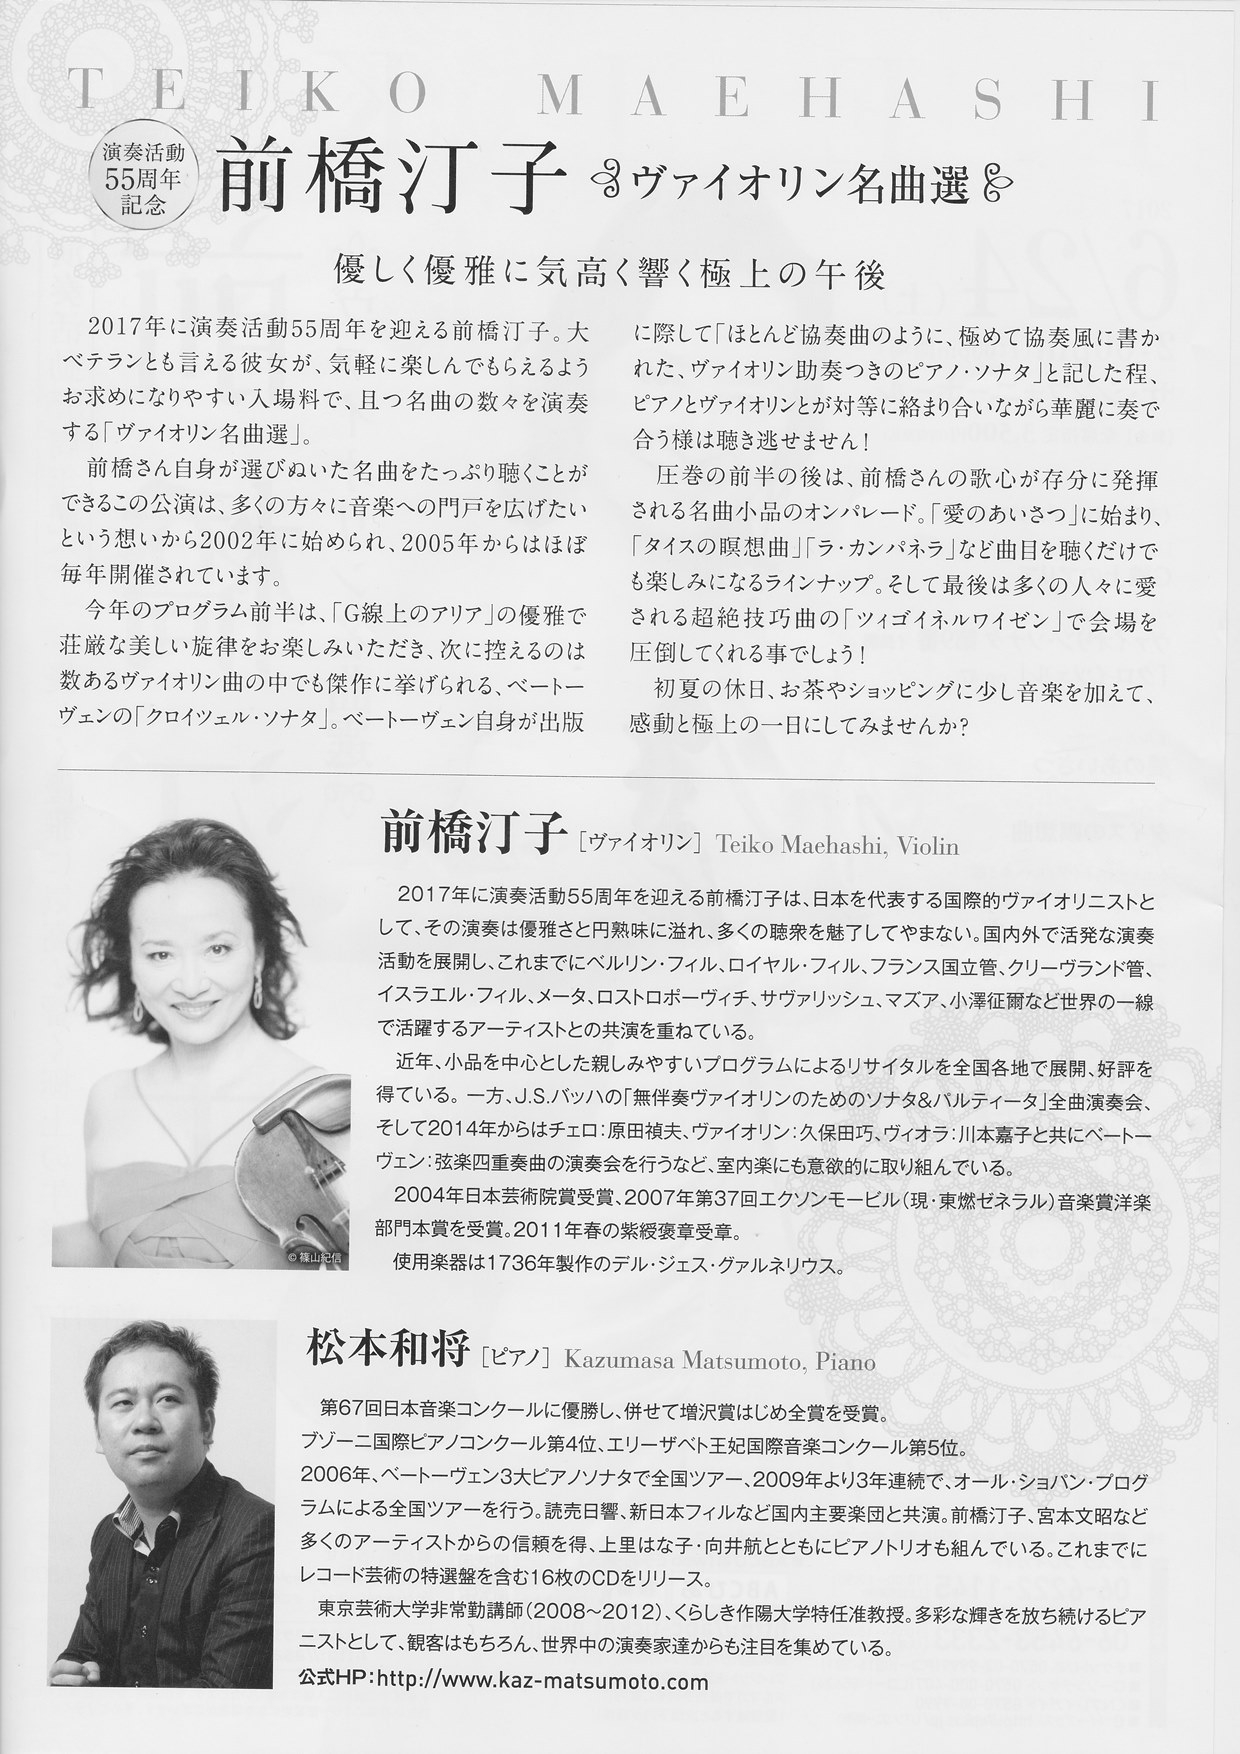 TEIKO MAEHASHI
演奏活動
55周年
記念
前橋汀子 ヴァイオリン名曲選
優しく優雅に気高く響く極上の午後
2017年に演奏活動55周年を迎える前橋汀子。大
ベテランとも言える彼女が、気軽に楽しんでもらえるよう
お求めになりやすい入場料で、且つ名曲の数々を演奏
する「ヴァイオリン名曲選」。
前橋さん自身が選びぬいた名曲をたっぷり聴くことが
できるこの公演は、多くの方々に音楽への門戸を広げたい
という想いから2002年に始められ、2005年からはほぼ
毎年開催されています。
今年のプログラム前半は、「G線上のアリア」の優雅で
荘厳な美しい旋律をお楽しみいただき、次に控えるのは
数あるヴァイオリン曲の中でも傑作に挙げられる、ベートー
ヴェンの「クロイツェル・ソナタ」。ベートーヴェン自身が出版
に際して「ほとんど協奏曲のように、極めて協奏風に書か
れた、ヴァイオリン助奏つきのピアノ・ソナタ」と記した程、
ピアノとヴァイオリンとが対等に絡まり合いながら華麗に奏で
合う様は聴き逃せません！
圧巻の前半の後は、前橋さんの歌心が存分に発揮
される名曲小品のオンパレード。「愛のあいさつ」に始まり、
「タイスの瞑想曲」「ラ・カンパネラ」など曲目を聴くだけで
も楽しみになるラインナップ。そして最後は多くの人々に愛
される超絶技巧曲の「ツィゴイネルワイゼン」で会場を
圧倒してくれる事でしょう！
初夏の休日、お茶やショッピングに少し音楽を加えて、
感動と極上の一日にしてみませんか？
前橋汀子［ヴァイオリン］ Teiko Maehashi, Violin
2017年に演奏活動55周年を迎える前橋汀子は、日本を代表する国際的ヴァイオリニストと
して、その演奏は優雅さと円熟味に溢れ、多くの聴衆を魅了してやまない。国内外で活発な演奏
活動を展開し、これまでにベルリン・フィル、ロイヤル・フィル、フランス国立管、クリーヴランド管、
イスラエル・フィル、メータ、ロストロポーヴィチ、サヴァリッシュ、マズア、小澤征爾など世界の一線
で活躍するアーティストとの共演を重ねている。
近年、小品を中心とした親しみやすいプログラムによるリサイタルを全国各地で展開、好評を
得ている。一方、J.S.バッハの「無伴奏ヴァイオリンのためのソナタ&パルティータ」全曲演奏会、
そして2014年からはチェロ：原田禎夫、ヴァイオリン：久保田巧、ヴィオラ：川本嘉子と共にベートー
ヴェン：弦楽四重奏曲の演奏会を行うなど、室内楽にも意欲的に取り組んでいる。
2004年日本芸術院賞受賞、2007年第37回エクソンモービル（現・東燃ゼネラル）音楽賞洋楽
部門本賞を受賞。2011年春の紫綬褒章受章。
使用楽器は1736年製作のデル・ジェス・グァルネリウス。
© 篠山紀信
松本和将［ピアノ］ Kazumasa Matsumoto, Piano
第67回日本音楽コンクールに優勝し、併せて増沢賞はじめ全賞を受賞。
ブゾーニ国際ピアノコンクール第4位、エリーザベト王妃国際音楽コンクール第5位。
2006年、ベートーヴェン3大ピアノソナタで全国ツアー、2009年より3年連続で、オール・ショパン・プログ
ラムによる全国ツアーを行う。読売日響、新日本フィルなど国内主要楽団と共演。前橋汀子、宮本文昭など
多くのアーティストからの信頼を得、上里はな子・向井航とともにピアノトリオも組んでいる。これまでに
レコード芸術の特選盤を含む16枚のCDをリリース。
東京芸術大学非常勤講師（2008〜2012）、くらしき作陽大学特任准教授。多彩な輝きを放ち続けるピア
ニストとして、観客はもちろん、世界中の演奏家達からも注目を集めている。
公式HP：http://www.kaz-matsumoto.com